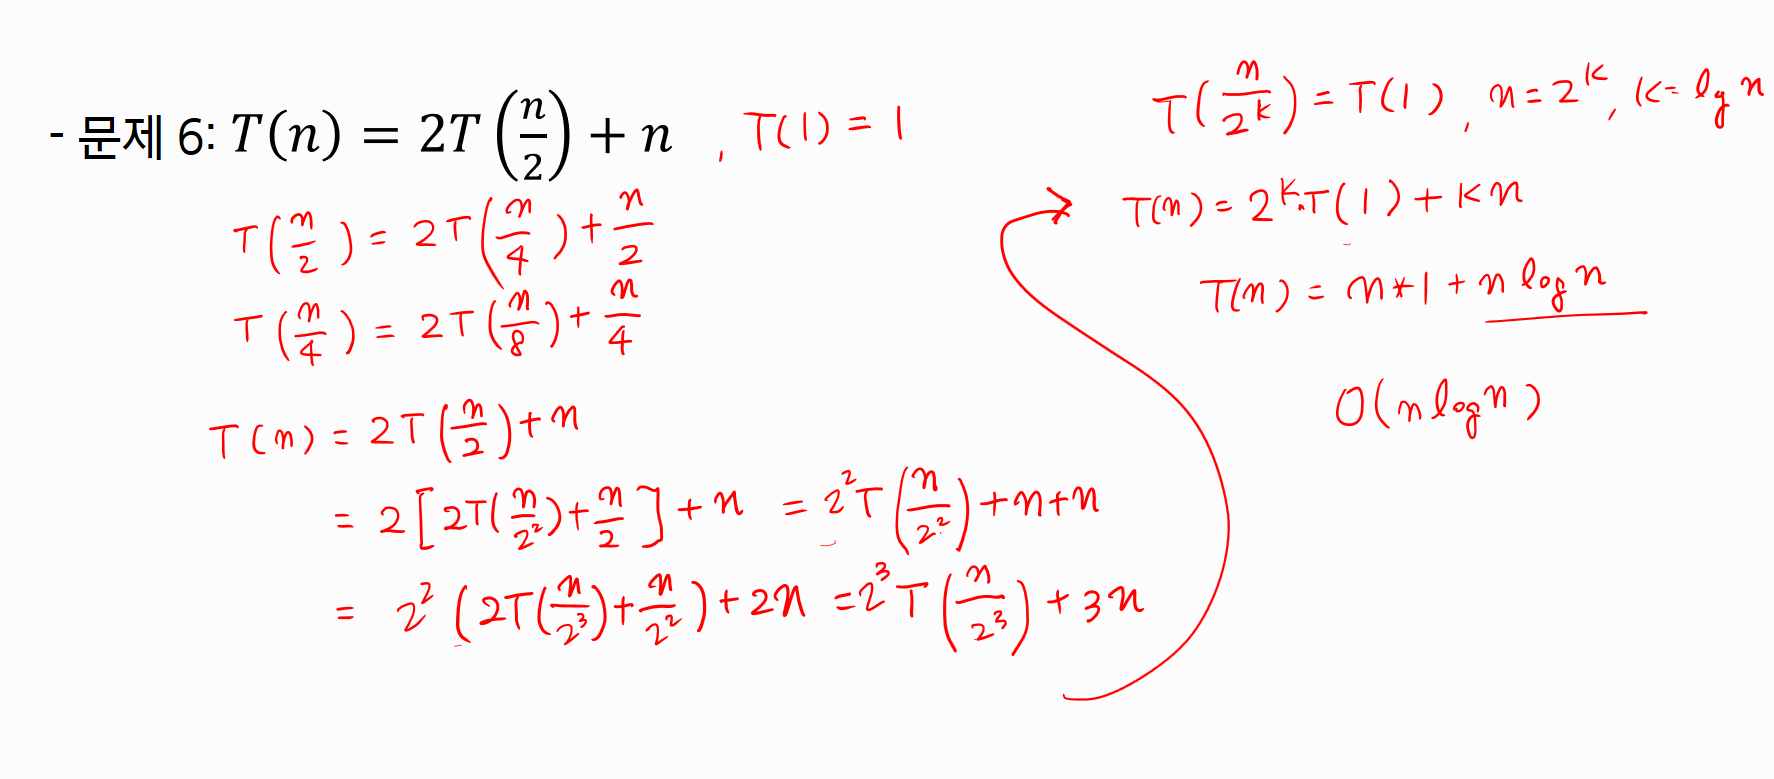 - 문제 6: T(n) = 2T(n/2) + n , T(1) = 1
T(n/2) = 2T(n/4) + n/2
T(n/4) = 2T(n/8) + n/4
T(n) = 2T(n/2) + n
= 2[2T(n/2²) + n/2] + n = 2²T(n/2²) + n + n
= 2²(2T(n/2³) + n/2²) + 2n = 2³T(n/2³) + 3n
T(n/2^k) = T(1), n = 2^k, k = lg n
T(n) = 2^k·T(1) + kn
T(n) = n*1 + n log n
O(n log n)